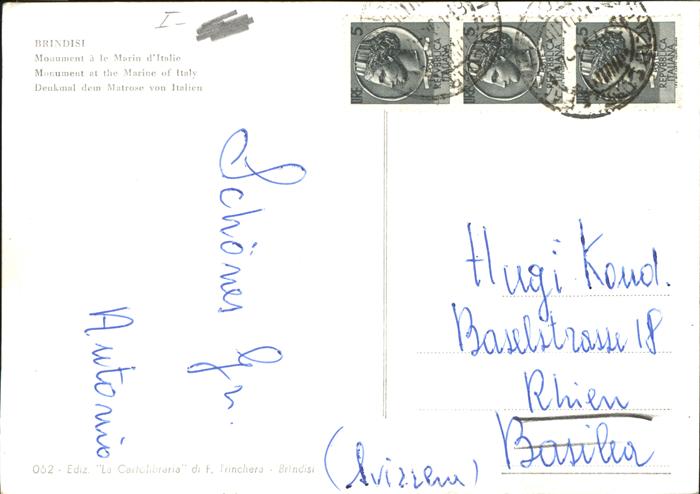 I-
BRINDISI
Monument à le Marin d'Italie
Monument at the Marine of Italy
Denkmal dem Matrose von Italien
5 LIRE REPUBBLICA ITALIANA
5 LIRE REPUBBLICA ITALIANA
5 LIRE REPUBBLICA ITALIANA
Schönes Gr.
Antonio
Hugi Kond.
Baselstrasse 18
Rhien
Basilea
(Svizzera)
062 - Ediz. "La Cartolibraria" di F. Trinchera - Brindisi